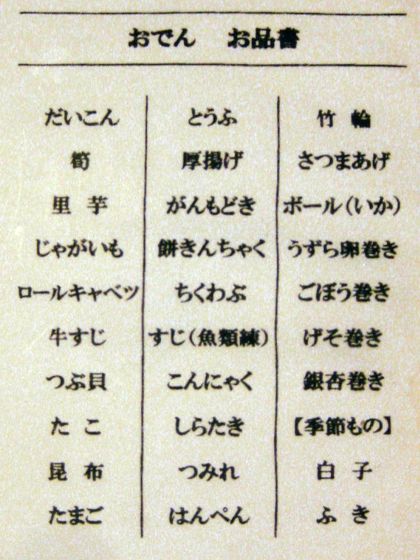 おでん お品書
だいこん とうふ 竹輪
筍 厚揚げ さつまあげ
里芋 がんもどき ボール(いか)
じゃがいも 餅きんちゃく うずら卵巻き
ロールキャベツ ちくわぶ ごぼう巻き
牛すじ すじ(魚類練) げそ巻き
つぶ貝 こんにゃく 銀杏巻き
たこ しらたき 【季節もの】
昆布 つみれ 白子
たまご はんぺん ふき